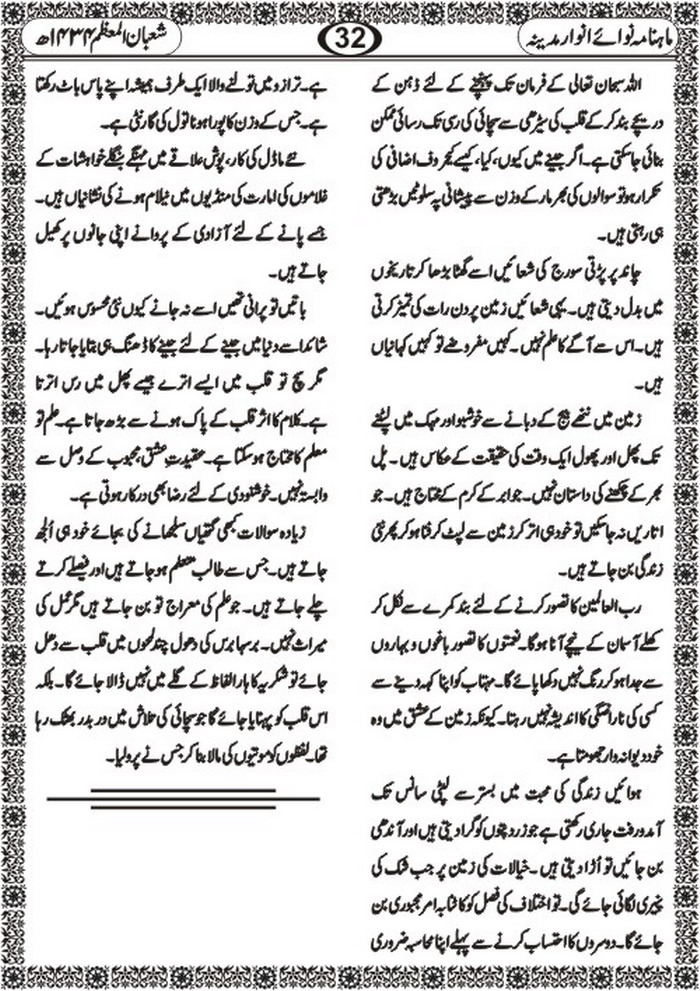 ماہنامہ نوائے انوار مدینہ
32
شعبان المعظم ۱۴۳۴ھ
اللہ سبحان تعالی کے فرمان تک پہنچنے کے لئے ذہن کے
دریچے بند کر کے قلب کی سیڑھی سے سچائی کی رسی تک رسائی ممکن
بنائی جا سکتی ہے۔ اگر جینے میں کیوں، کیا، کیسے کیحروف اضافی کی
تکرار ہو تو سوالوں کی بھرمار کے وزن سے پیشانی پہ سلوٹیں بڑھتی
ہی رہتی ہیں۔
چاند پر پڑتی سورج کی شعائیں اسے گھٹا بڑھا کر تاریخوں
میں بدل دیتی ہیں۔ یہی شعائیں زمین پر دن رات کی تمیز کرتی
ہیں۔ اس سے آگے کا علم نہیں۔ کہیں مفروضے تو کہیں کہانیاں
ہیں۔
زمین میں ننھے بیج کے دبانے سے خوشبو اور مہک میں لپٹنے
تک پھل اور پھول ایک وقت کی حقیقت کے عکاس ہیں۔ پل
بھر کے چکھنے کی داستان نہیں۔ جو ابر کے کرم کے محتاج ہیں۔ جو
اتاریں نہ جاسکیں تو خود ہی اتر کر زمین سے لپٹ کر فنا ہو کر پھر نئی
زندگی بن جاتے ہیں۔
رب العالمین کا تصور کرنے کے لئے بند کمرے سے نکل کر
کھلے آسمان کے نیچے آنا ہوگا۔ نعمتوں کا تصور باغوں و بہاروں
سے جدا ہو کر رنگ نہیں دکھا پائے گا۔ مہتاب کو اپنا کہہ دینے سے
کسی کی ناراضگی کا اندیشہ نہیں رہتا۔ کیونکہ زمین کے عشق میں وہ
خود دیوانہ وار جھومتا ہے۔
ہوائیں زندگی کی محبت میں بستر سے لپٹی سانس تک
آمدورفت جاری رکھتی ہے جو زرد پتوں کو گرا دیتی ہیں اور آندھی
بن جائیں تو اُڑا دیتی ہیں۔ خیالات کی زمین پر جب شک کی
پنیری لگائی جائے گی۔ تو اختلاف کی فصل کو کاٹنا بہ امر مجبوری بن
جائے گا۔ دوسروں کا احتساب کرنے سے پہلے اپنا محاسبہ ضروری
ہے۔ ترازو میں تولنے والا ایک طرف ہمیشہ اپنے پاس باٹ رکھتا
ہے۔ جس کے وزن کا پورا ہونا تول کی گارنٹی ہے۔
نئے ماڈل کی کار، پوش علاقے میں مہنگے بنگلے خواہشات کے
غلاموں کی امارت کی منڈیوں میں نیلام ہونے کی نشانیاں ہیں۔
جسے پانے کے لئے آزادی کے پروانے اپنی جانوں پر کھیل
جاتے ہیں۔
باتیں تو پرانی تھیں اسے نہ جانے کیوں نئی محسوس ہوئیں۔
شائد اسے دنیا میں جینے کے لئے جینے کا ڈھنگ ہی بتایا جاتا رہا۔
مگر سچ تو قلب میں ایسے اترے جیسے پھل میں رس اترتا
ہے۔ کلام کا اثر قلب کے پاک ہونے سے بڑھ جاتا ہے۔ علم تو
معلم کا محتاج ہو سکتا ہے۔ عقیدتِ عشق، محبوب کے وصل سے
وابستہ نہیں۔ خوشنودی کے لئے رضا بھی درکار ہوتی ہے۔
زیادہ سوالات کبھی گتھیاں سلجھانے کی بجائے خود ہی اُلجھ
جاتے ہیں۔ جس سے طالب متعلم ہو جاتے ہیں اور فیصلے کرتے
چلے جاتے ہیں۔ جو علم کی معراج تو بن جاتے ہیں مگر عمل کی
میراث نہیں۔ برسہا برس کی دھول چند لمحوں میں قلب سے دھل
جائے تو شکریہ کا ہار الفاظ کے گلے میں نہیں ڈالا جائے گا۔ بلکہ
اس قلب کو پہنایا جائے گا جو سچائی کی تلاش میں در بدر بھٹک رہا
تھا۔ لفظوں کو موتیوں کی مالا بنا کر جس نے پرو لیا۔